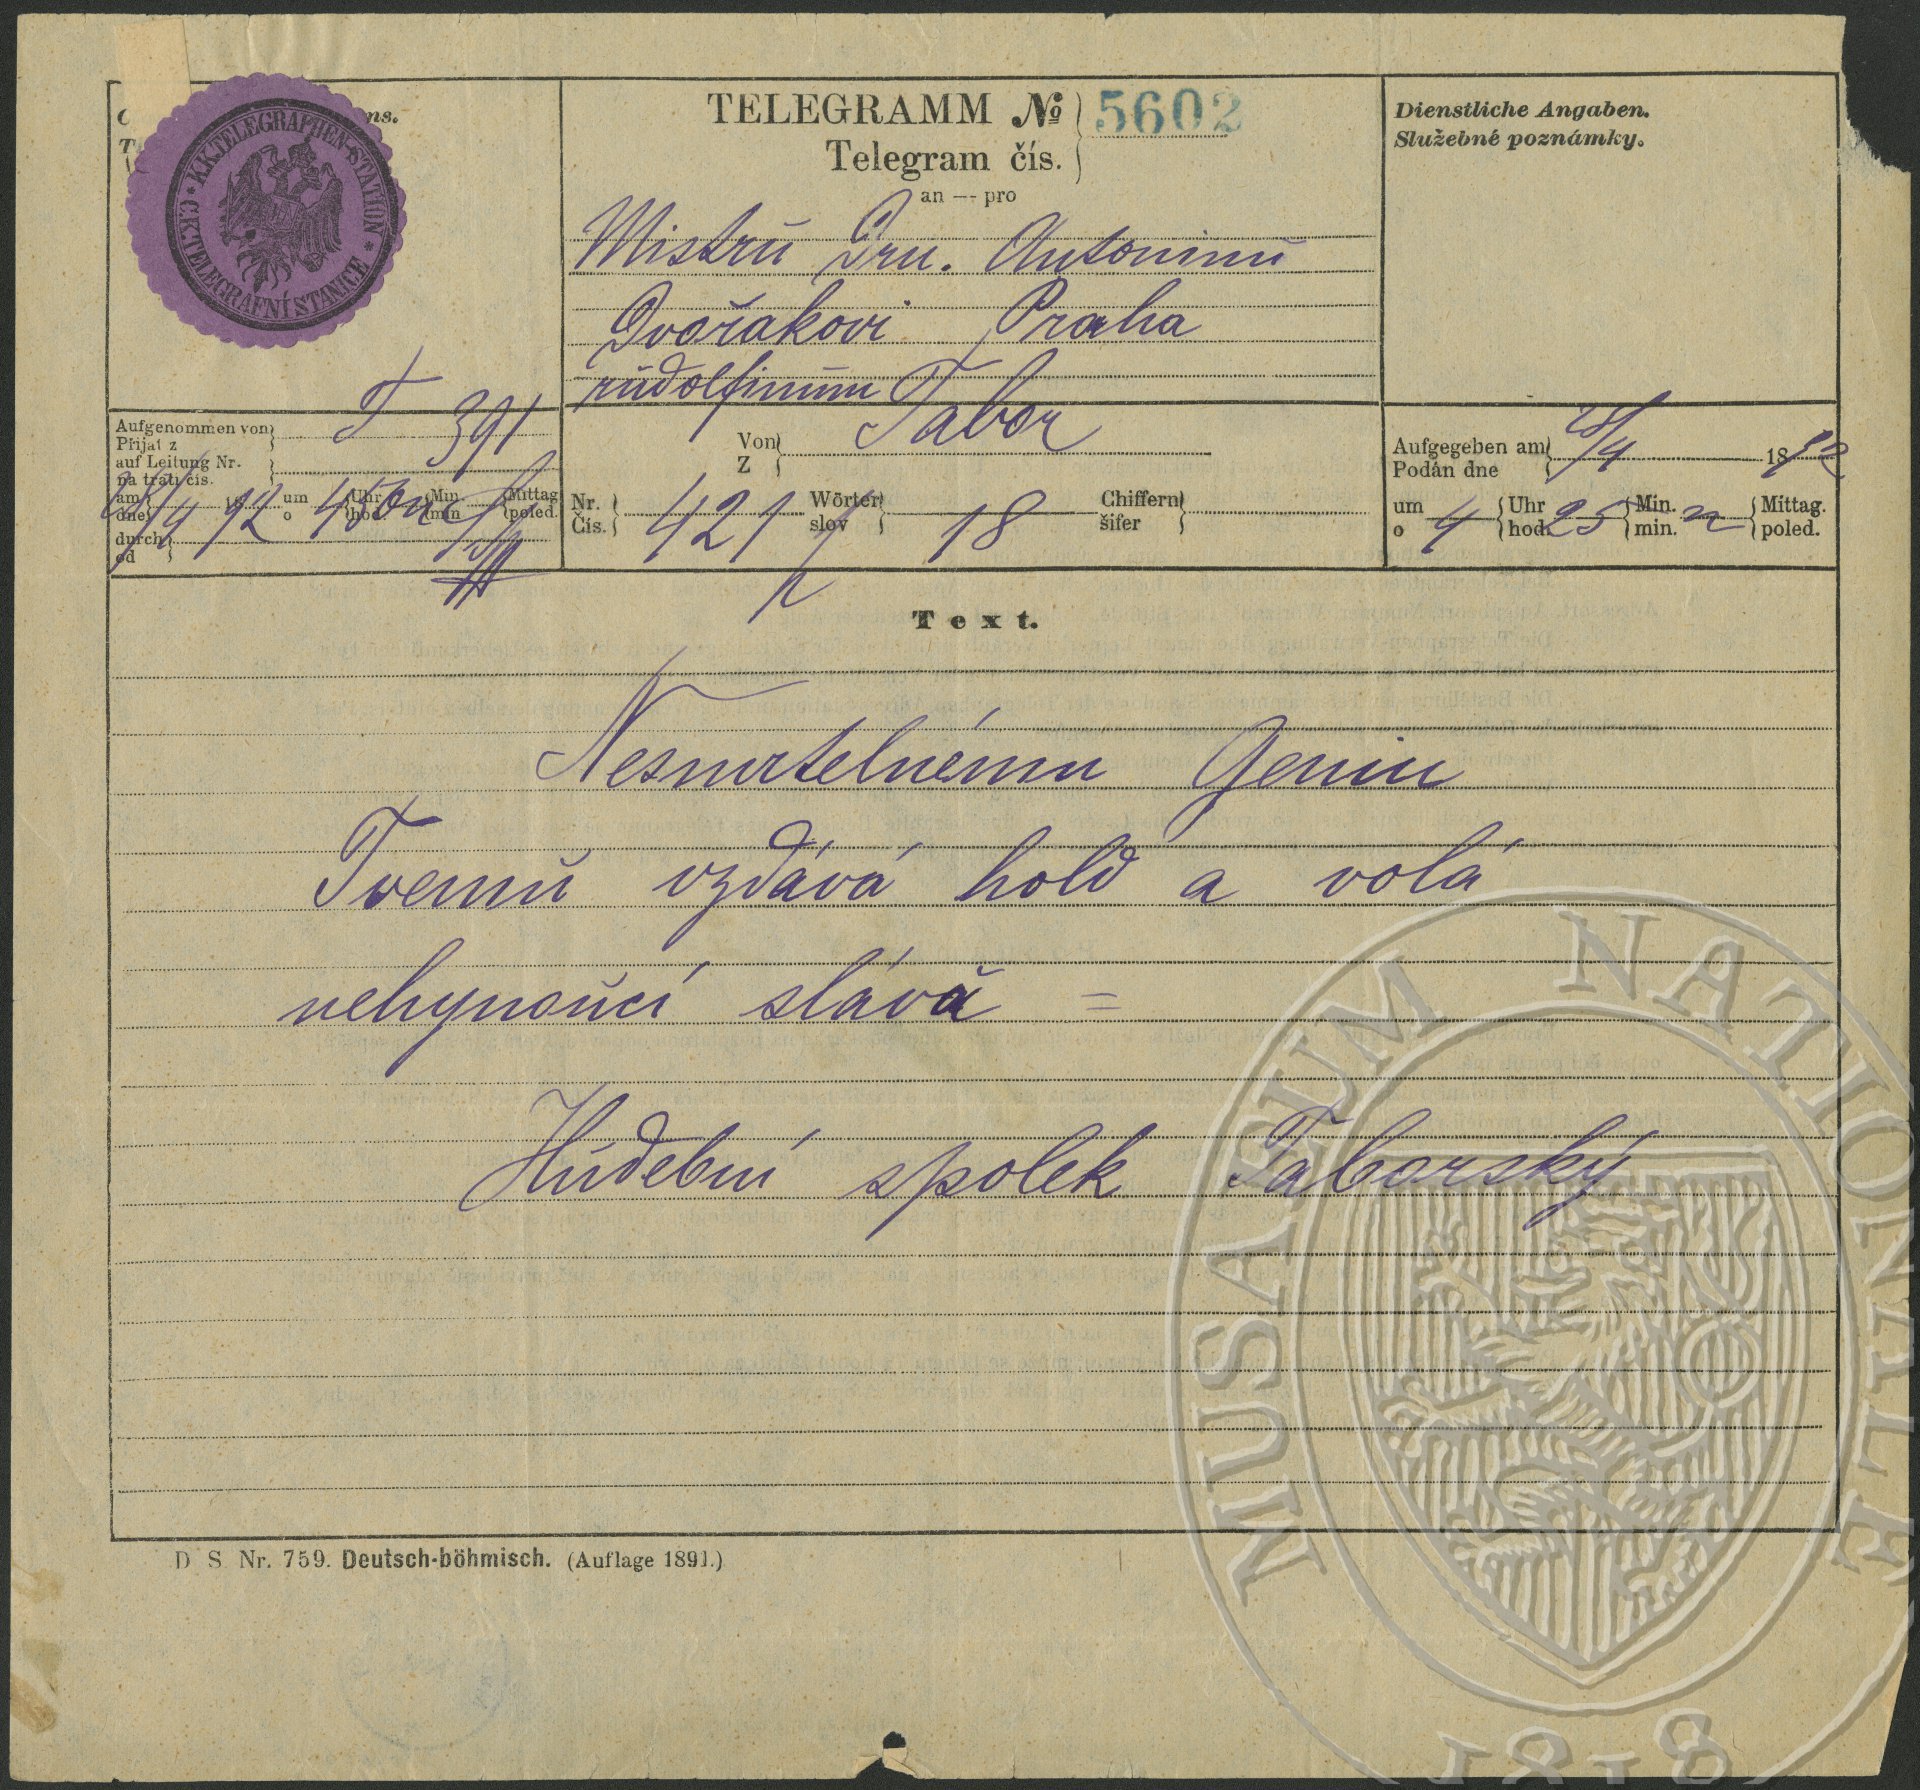 ns.
K.K. TELEGRAPHEN-STATION * C.K. TELEGRAFNÍ STANICE *
TELEGRAMM No 5602
Telegram čís.
an — pro
Mistrŭ Dru. Antoninŭ
Dvořakovi Praha
rŭdolfinŭm
Dienstliche Angaben.
Služebné poznámky.
Aufgenommen von T 391
Přijat z
auf Leitung Nr.
na trati čís.
am 28/4 92 um 4 Uhr 50 Min. Mittag
dne o hod. min. poled.
durch
od
Von Tabor
Z
Nr. 421 Wörter 18 Chiffern
Čís. slov šifer
Aufgegeben am 28/4 1892
Podán dne
um 4 Uhr 25 Min. n Mittag.
o hod. min. poled.
Text.
Nesmrtelnému Geniu
Tvemŭ vzdává hold a volá
nehynoŭcí slávŭ =
Hŭdební spolek Taborský
D S. Nr. 759. Deutsch-böhmisch. (Auflage 1891.)
MUSAEUM NATIONALE
1818